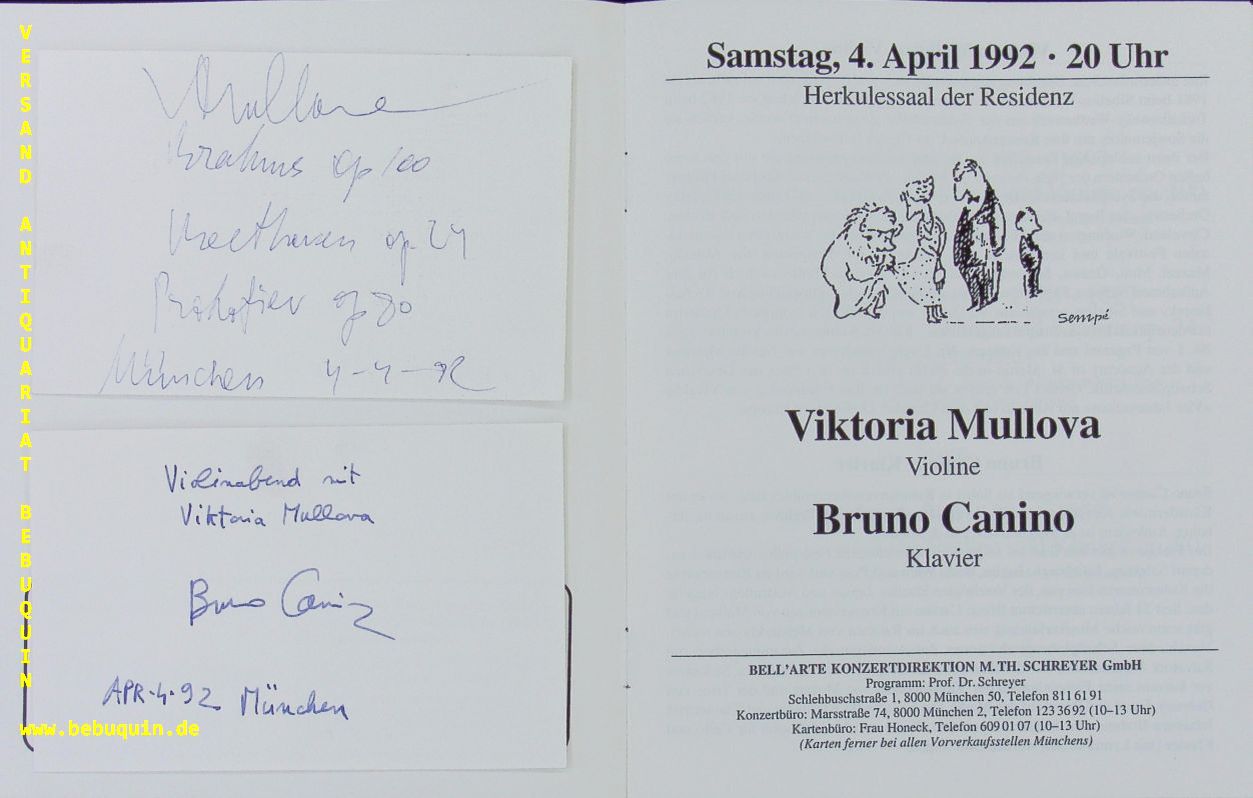 VERSAND ANTIQUARIAT BEBUQUIN
www.bebuquin.de
Mullova
Brahms op 100
Beethoven op. 24
Prokofiev op 80
München 4-4-92
Violinabend mit
Viktoria Mullova
Bruno Canino
APR.4.92 München
Samstag, 4. April 1992 · 20 Uhr
Herkulessaal der Residenz
sempé
Viktoria Mullova
Violine
Bruno Canino
Klavier
BELL'ARTE KONZERTDIREKTION M. TH. SCHREYER GmbH
Programm: Prof. Dr. Schreyer
Schlehbuschstraße 1, 8000 München 50, Telefon 811 61 91
Konzertbüro: Marsstraße 74, 8000 München 2, Telefon 123 36 92 (10–13 Uhr)
Kartenbüro: Frau Honeck, Telefon 609 01 07 (10–13 Uhr)
(Karten ferner bei allen Vorverkaufsstellen Münchens)